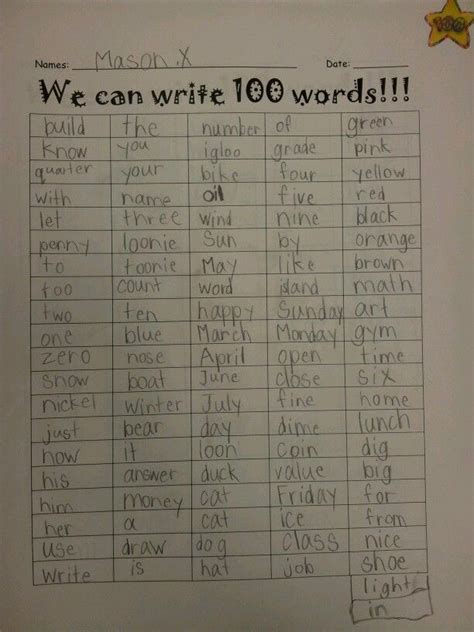 100
Names: Mason.X Date:
We can write 100 words!!!
build the number of green
know you igloo grade pink
quarter your bike four yellow
with name oil five red
let three wind nine black
penny loonie Sun by orange
to toonie May like brown
too count word island math
two ten happy Sunday art
one blue March Monday gym
zero nose April open time
snow boat June close six
nickel winter July fine home
just bear day dime lunch
how it loon coin dig
his answer duck value big
him money cat Friday for
her a cat ice from
use draw dog class nice
write is hat job shoe
light
in